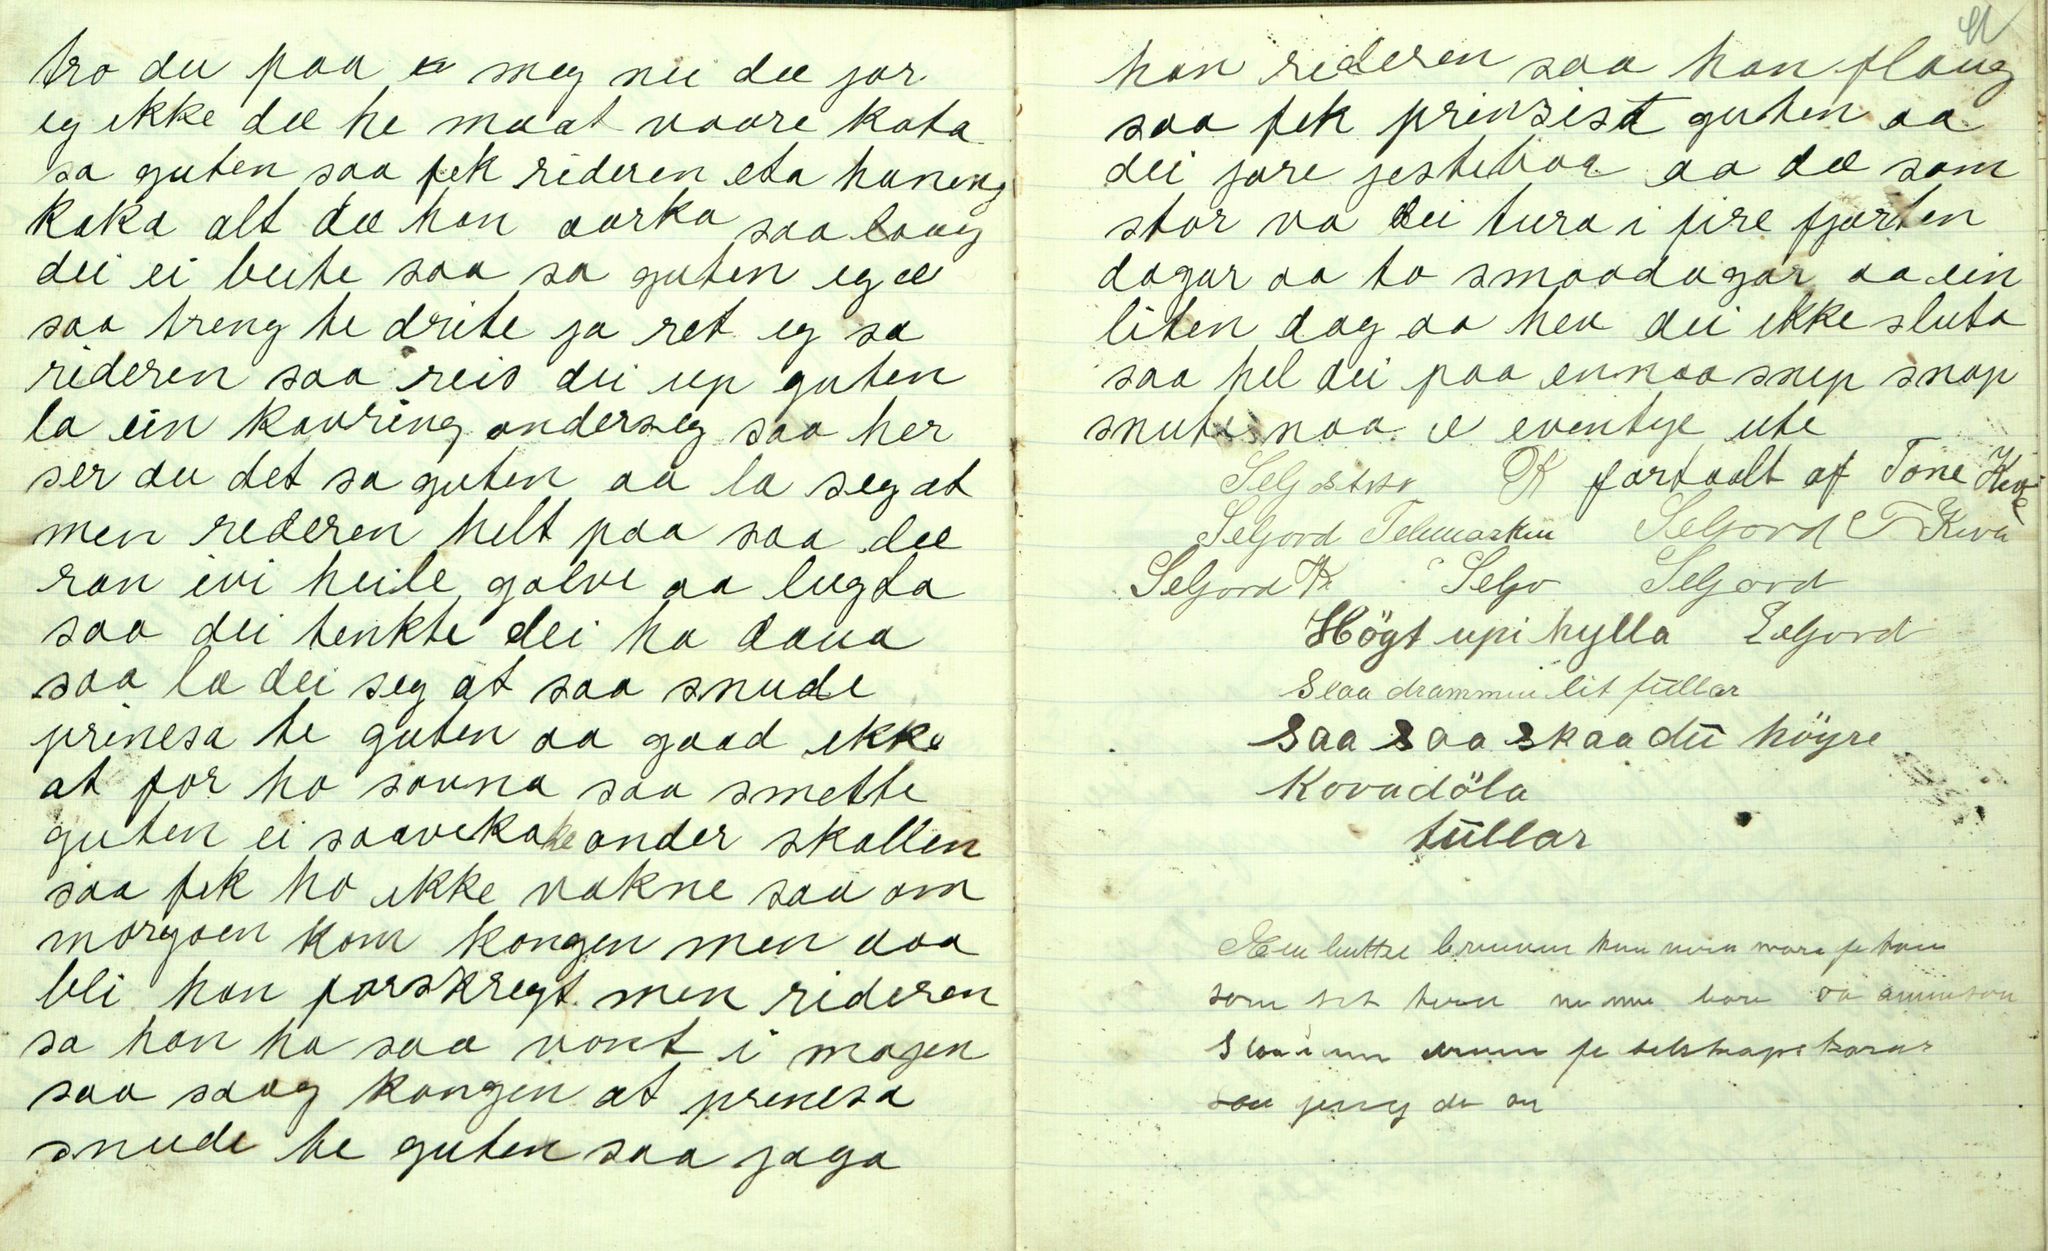 tro du paa meg nei dæ jor
eg ikke dæ he maat vaare kata
sa guten saa fek rideren eta honeng
kaka alt dæ han aarka saa laag
dei ei beite saa sa guten eg æ
saa treng te drite ja ret eg sa
rideren saa reis dei up guten
la ein kavring onderseg saa her
ser du det sa guten aa la seg at
men rederen helt paa saa dæ
ran ivi heile golve aa lugta
saa dei tenkte dei ha daua
saa la dei seg at saa snude
prinesa te guten aa gaad ikke
at for ho sovna saa smette
guten ei saavekake onder skallen
saa fek ho ikke vakne saa om
morgoen kom kongen men daa
bli han forskregt men rideren
sa han ha saa vont i magen
saa saag kongen at prenesa
snude te guten saa jaga
han rideren saa han flaug
saa fek prinsist guten aa
dei jore jestebaa aa dæ som
stor va dei tura i fire fjorten
dagar aa to smaadagar aa ein
liten dag aa hev dei ikke sluta
saa hel dei paa ennaa snip snap
snute naa æ eventye ute
fortaalt af Tone
Seljord Telemarken Seljord T
Seljord Seljo Seljord
Högt upi hylla Seljord
Slaa drammin lit fullar
saa saa skaa du höyre
Kovadöla
tullar
som